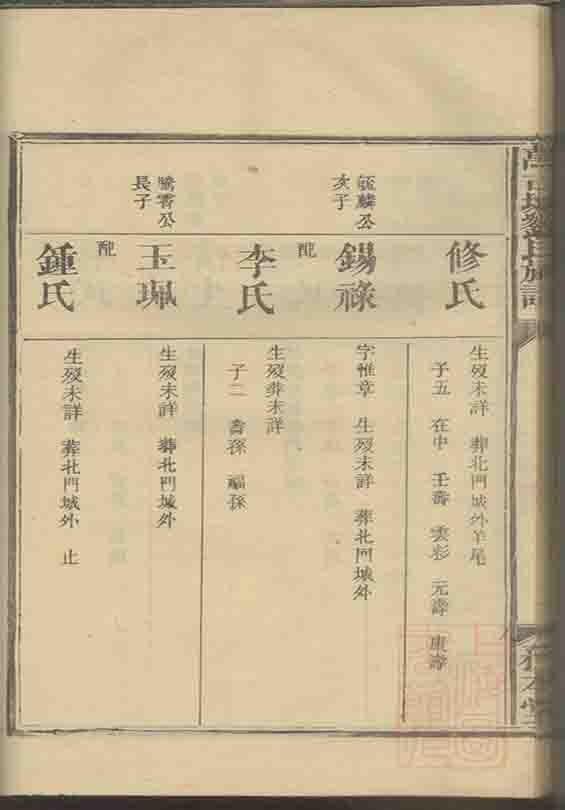 氏族譜
修氏
生歿未詳 葬北門城外羊尾
子五 在中 壬壽 雲彩 元壽 康壽
麟公
次子
錫祿
字惟章 生歿未詳 葬北門城外
配
李氏
生歿葬未詳
子二 壽孫 福孫
騰霄公
長子
玉珮
生歿未詳 葬北門城外
配
鍾氏
生歿未詳 葬北門城外 止